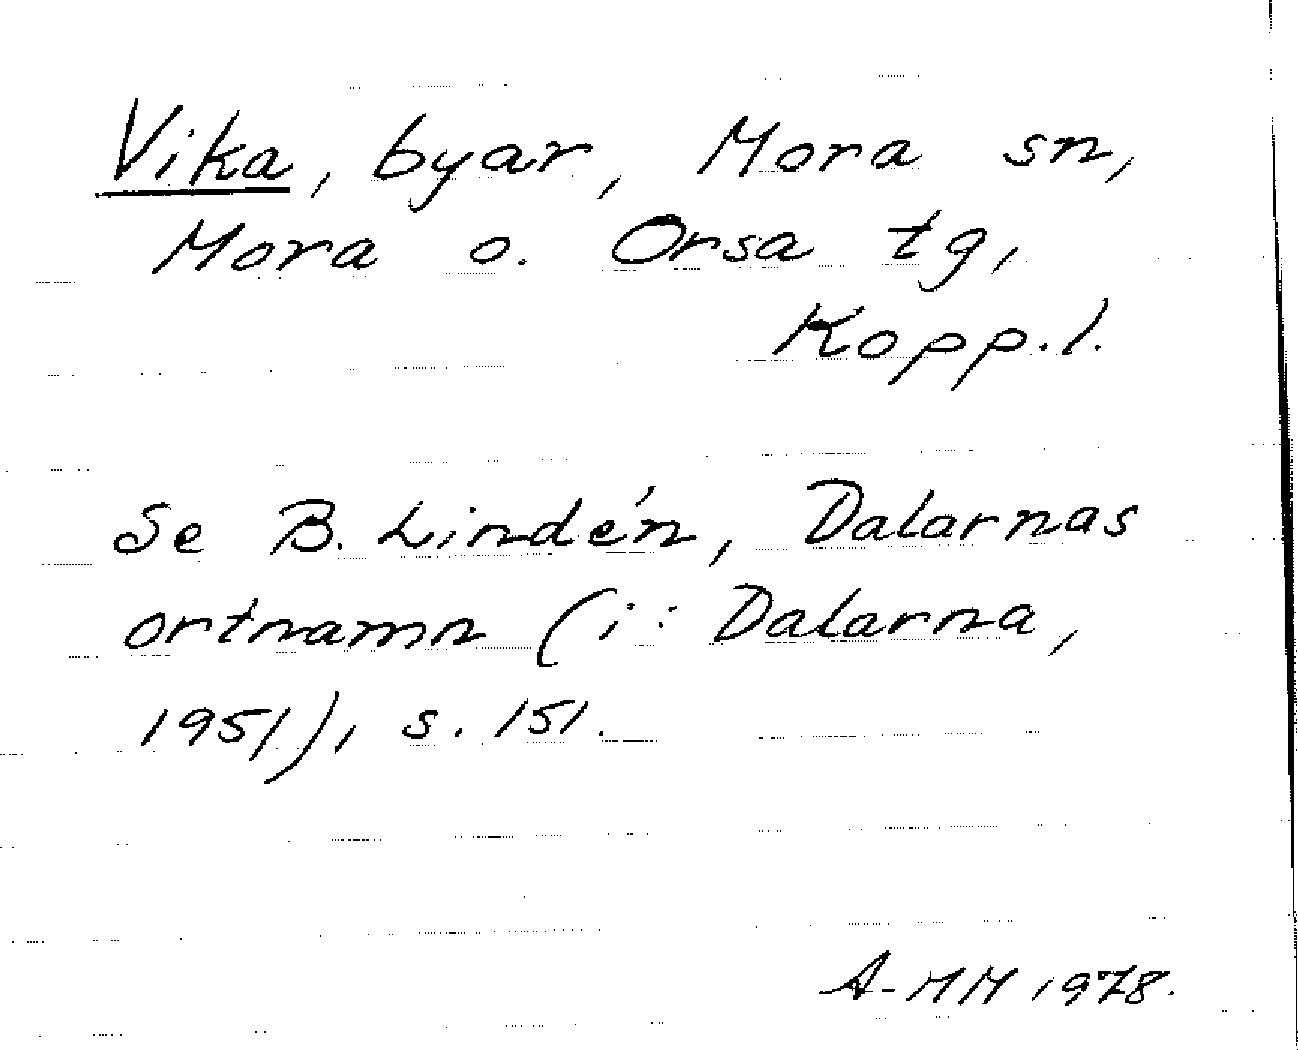 Vika, byar, Mora sn,
Mora o. Orsa tg,
Kopp.l.
Se B. Lindén, Dalarnas
ortnamn (i: Dalarna,
1951), s. 151.
A-MM 1978.